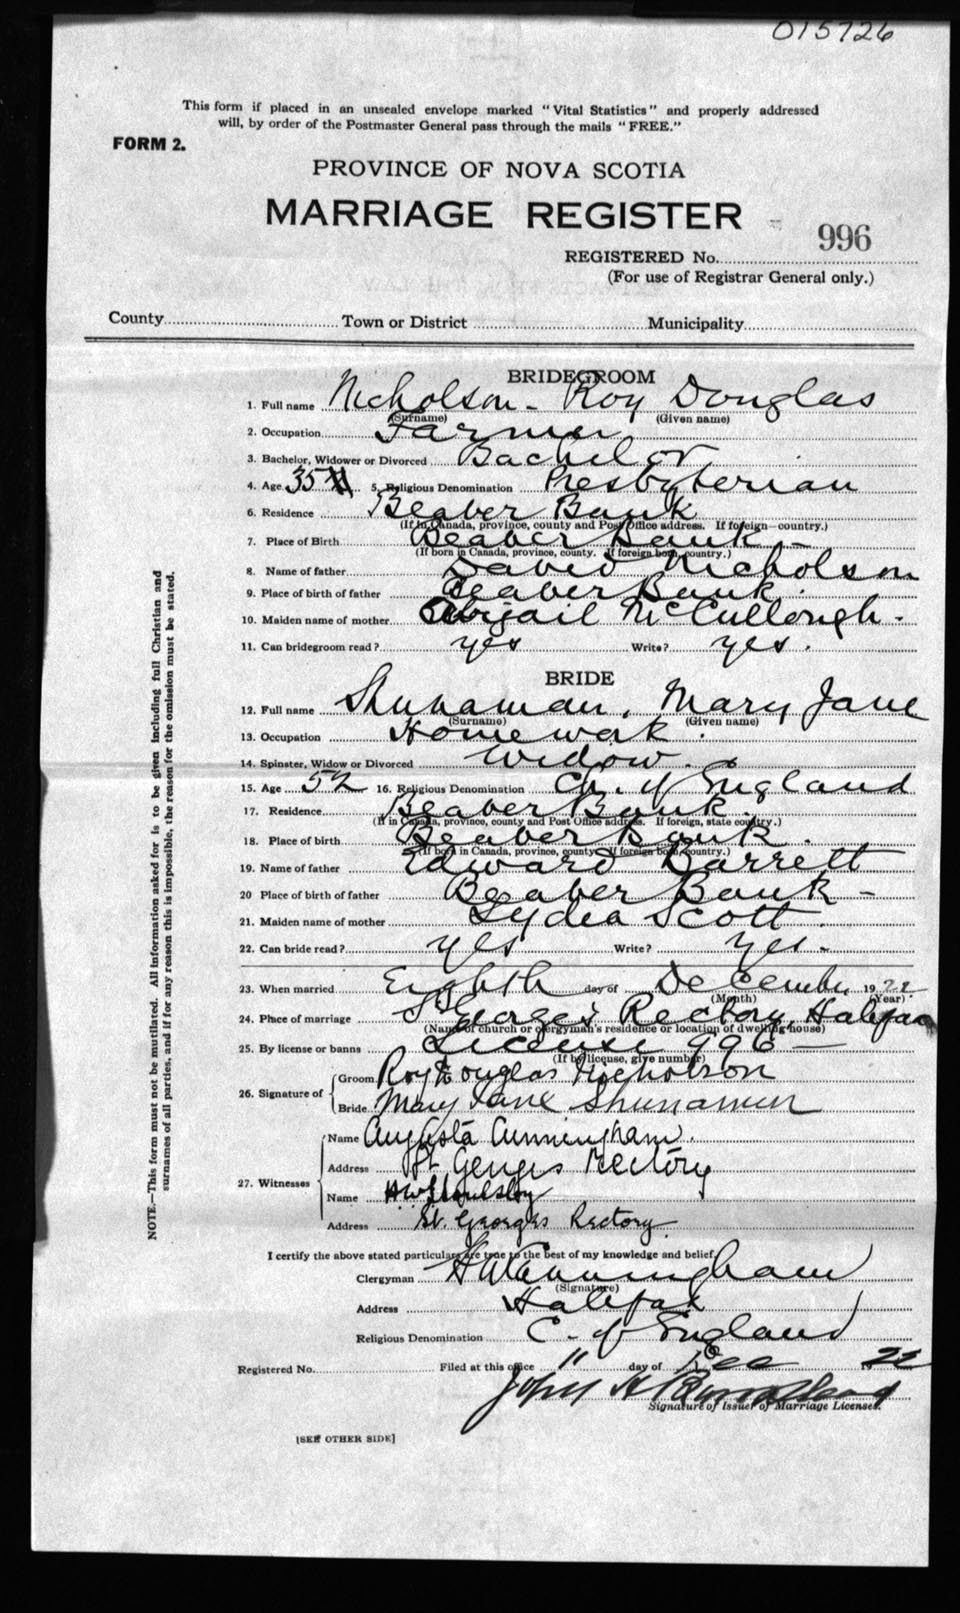 015726
This form if placed in an unsealed envelope marked "Vital Statistics" and properly addressed
will, by order of the Postmaster General pass through the mails "FREE."
FORM 2.
PROVINCE OF NOVA SCOTIA
MARRIAGE REGISTER
996
REGISTERED No.
(For use of Registrar General only.)
County Town or District Municipality
BRIDEGROOM
1. Full name Nicholson - Roy Douglas
(Surname) (Given name)
2. Occupation Farmer
3. Bachelor, Widower or Divorced Bachelor
4. Age 35 5. Religious Denomination Presbyterian
6. Residence Beaver Bank
(If in Canada, province, county and Post Office address. If foreign—country.)
7. Place of Birth Beaver Bank -
(If born in Canada, province, county. If foreign born, country.)
8. Name of father David Nicholson
9. Place of birth of father Beaver Bank.
10. Maiden name of mother Abigail McCullough -
11. Can bridegroom read? yes Write? yes.
BRIDE
12. Full name Shunaman, Mary Jane
(Surname) (Given name)
13. Occupation Homework.
14. Spinster, Widow or Divorced Widow.
15. Age 52 16. Religious Denomination Ch. of England
17. Residence Beaver Bank.
(If in Canada, province, county and Post Office address. If foreign, state country.)
18. Place of birth Beaver Bank.
(If born in Canada, province, county. If foreign born, country.)
19. Name of father Edward Barrett
20 Place of birth of father Beaver Bank -
21. Maiden name of mother Lydia Scott
22. Can bride read? yes Write? yes.
23. When married Eighth day of December 1922
(Month) (Year)
24. Place of marriage St Georges Rectory, Halifax
(Name of church or clergyman's residence or location of dwelling house)
25. By license or banns License 996 —
(If by license, give number)
26. Signature of
Groom Roy Douglas Nicholson
Bride Mary Jane Shunamun
27. Witnesses
Name Augusta Cunningham.
Address St. Georges Rectory
Name
Address St. Georges Rectory
I certify the above stated particulars are true to the best of my knowledge and belief.
Clergyman H W Cunningham
(Signature)
Address Halifax
Religious Denomination C. of England
Registered No. Filed at this office 11 day of Dec 1922
John H
Signature of Issuer of Marriage Licenses.
[SEE OTHER SIDE]
NOTE.—This form must not be mutilated. All information asked for is to be given including full Christian and
surnames of all parties, and if for any reason this is impossible, the reason for the omission must be stated.